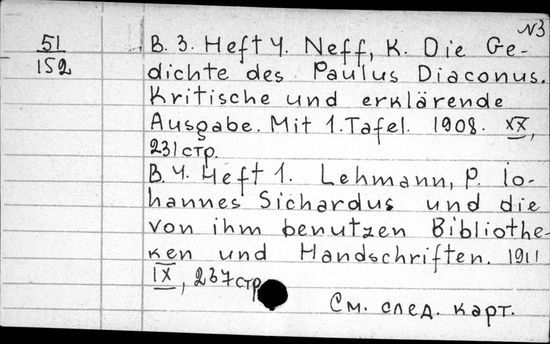 N3
51
152
B. 3. Heft 4. Neff, K. Die Ge-
dichte des Paulus Diaconus.
Kritische und erklärende
Ausgabe. Mit 1. Tafel. 1908. XX,
231 стр.
B. 4. Heft 1. Lehmann, P. Io-
hannes Sichardus und die
von ihm benutzen Bibliothe-
ken und Handschriften. 1911
IX, 237 стр.
См. след. карт.